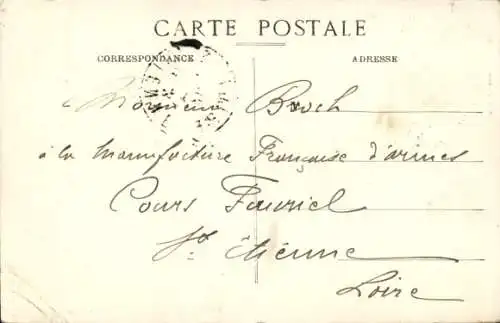 CARTE POSTALE
CORRESPONDANCE ADRESSE
Monsieur Broch
à la Manufacture Française d'armes
Cours Fauriel
St Etienne
Loire